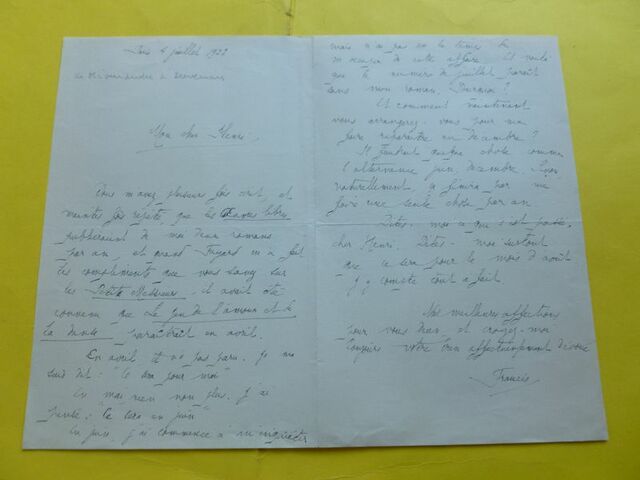 Paris 4 juillet 1922
de Miomandre à Duvernois
Mon cher Henri,
Vous m'avez plusieurs fois écrit, et
maintes fois répété, que les Œuvres libres
publieraient de moi deux romans
par an, et quand Fayard m'a fait
les compliments que vous savez sur
les Petits Messieurs, il avait été
convenu que Le Jeu de l'amour et de
la mode paraîtrait en avril.
En avril il n'a pas paru. Je me
suis dit : "Ce sera pour mai"
En mai rien non plus. J'ai
pensé : "Ce sera en juin"
En juin, j'ai commencé à m'inquiéter
mais n'ai pas eu le temps de
m'occuper de cette affaire. Et voilà
que le numéro de juillet paraît
sans mon roman. Pourquoi ?
Et comment maintenant
vous arrangerez-vous pour me
faire reparaître en décembre ?
Il faudrait quelque chose comme
l'alternance juin, décembre. Sans
naturellement, ça finira par me
faire une seule chose par an
Dites-moi ce qui s'est passé,
cher Henri. Dites-moi surtout
que ce sera pour le mois d'août
J'y compte tout à fait
Mes meilleures affections
pour vous deux et croyez-moi
toujours votre bien affectueusement dévoué
Francis